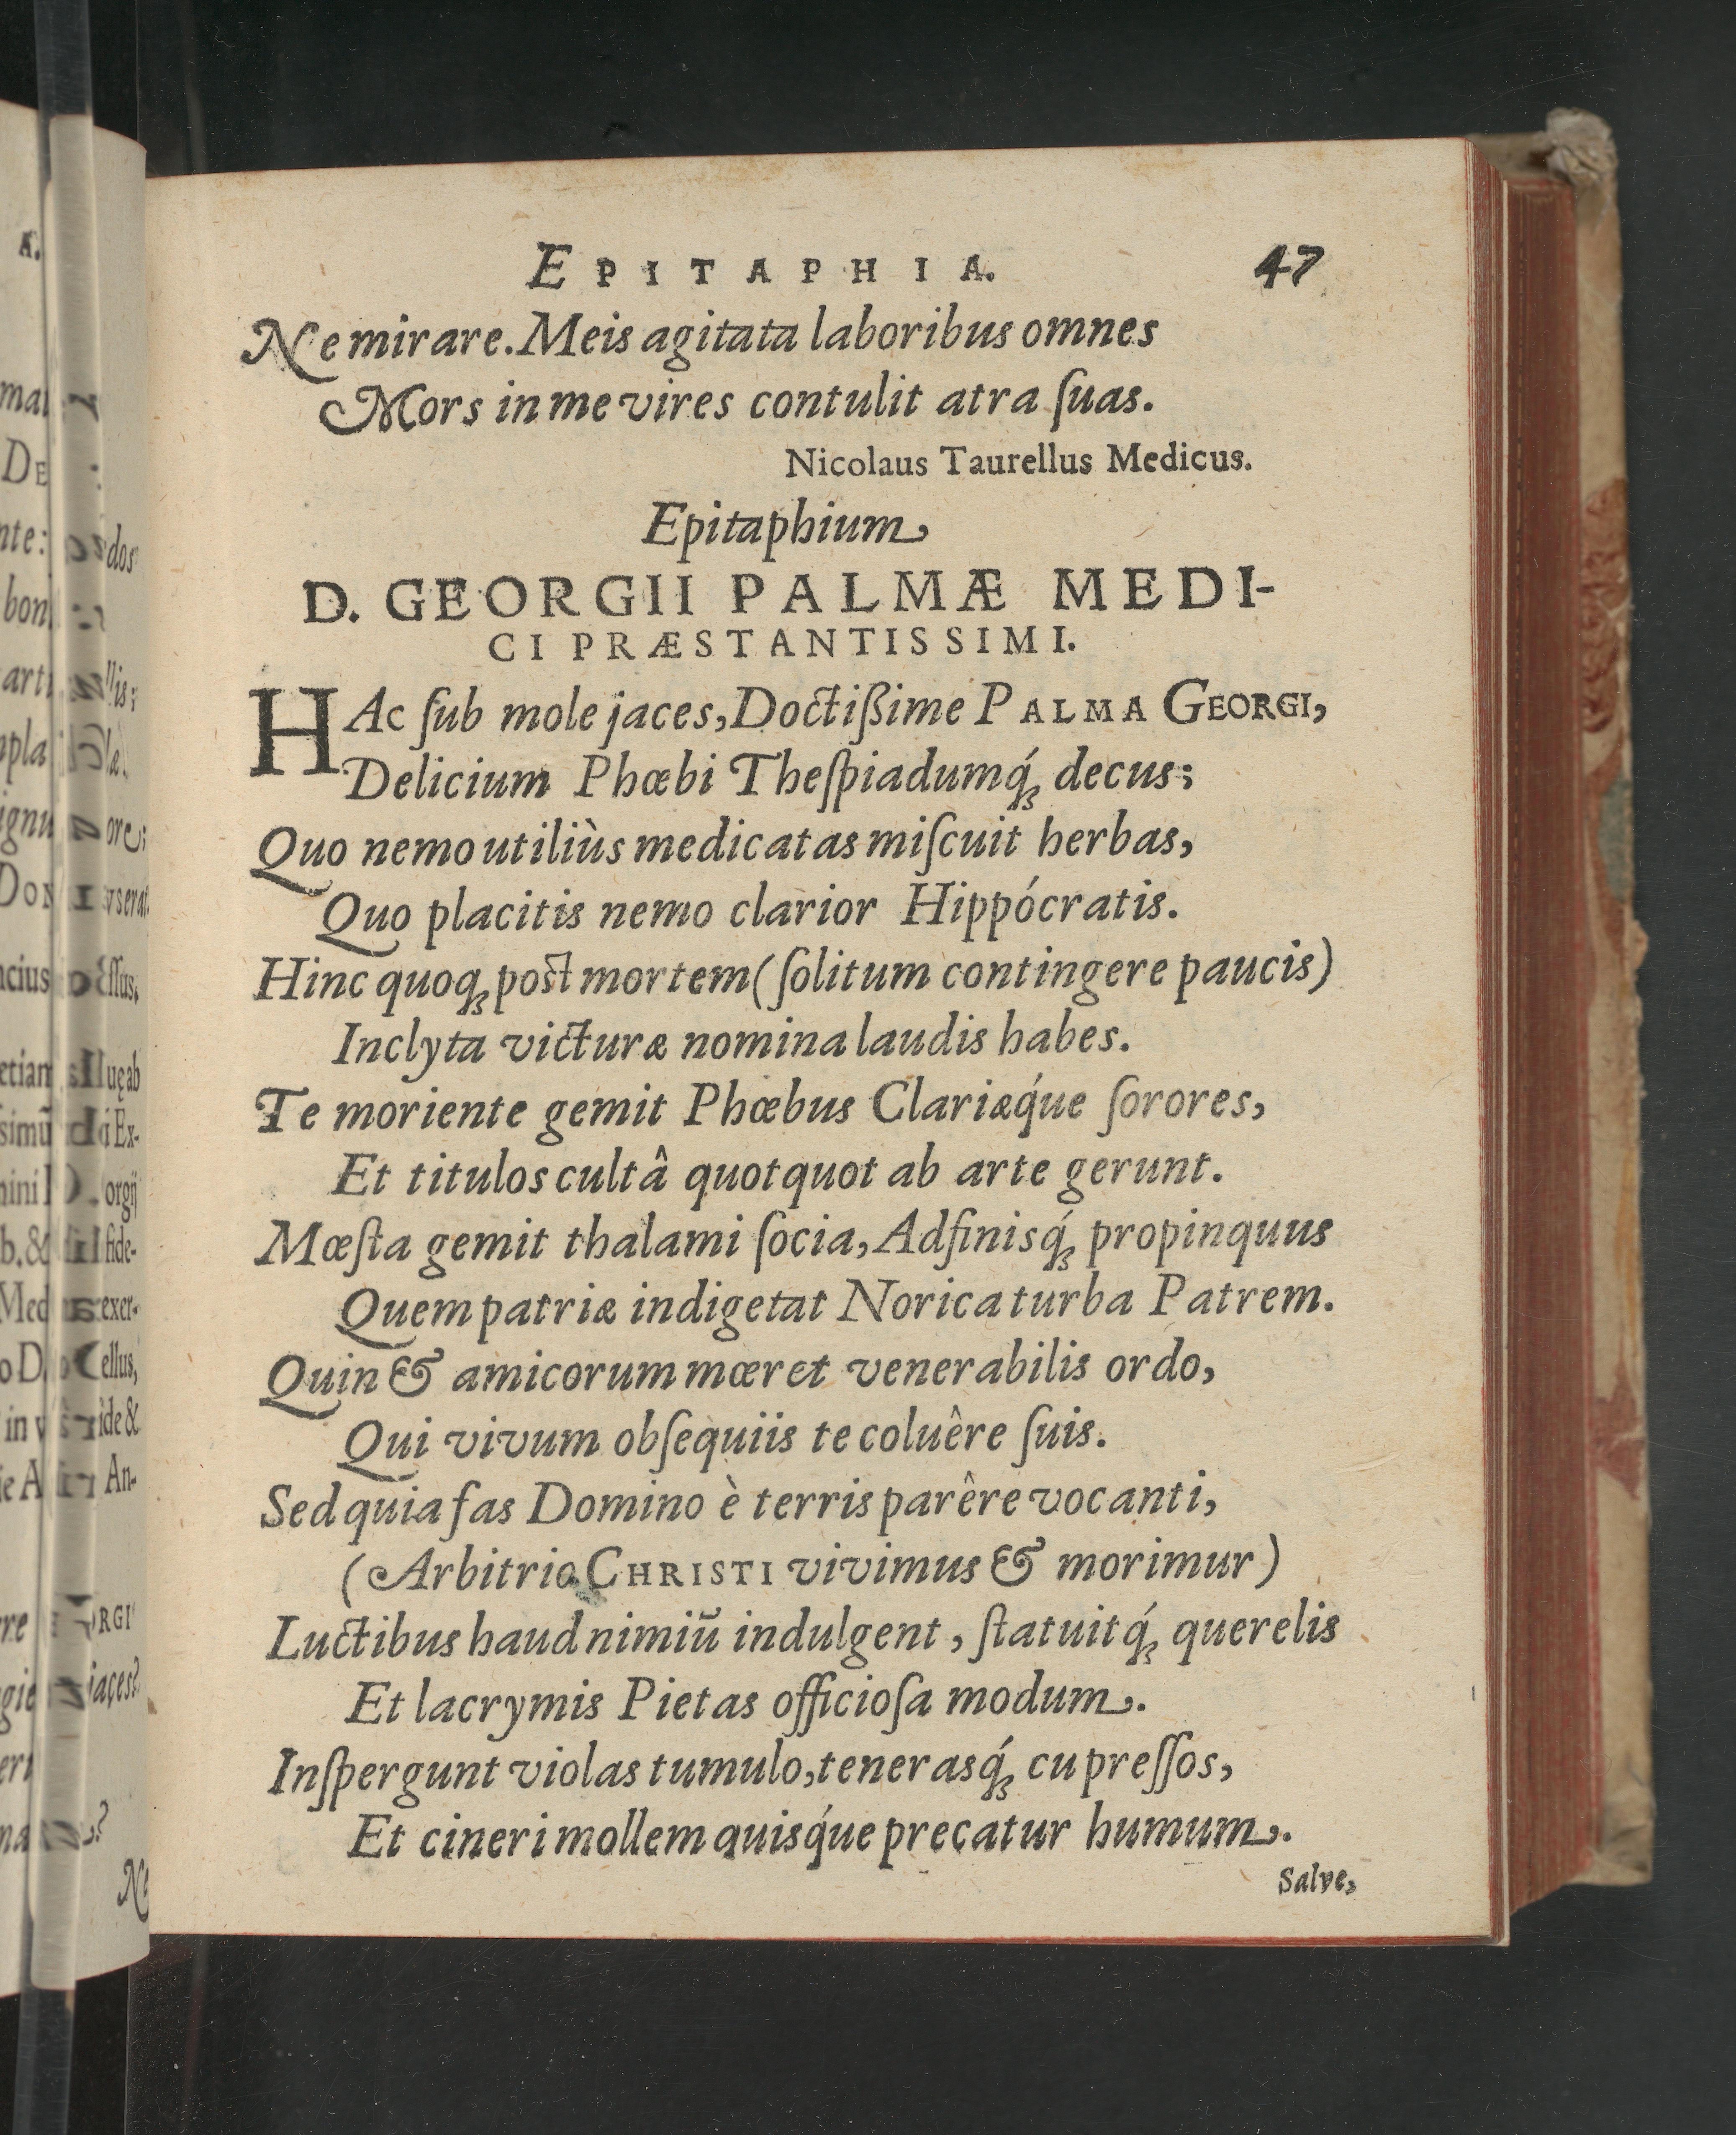 EPITAPHIA. 47
Ne mirare. Meis agitata laboribus omnes
Mors in me vires contulit atra ſuas.
Nicolaus Taurellus Medicus.
Epitaphium
D. GEORGII PALMÆ MEDI-
CI PRÆSTANTISSIMI.
HAc ſub mole jaces, Doctißime PALMA GEORGI,
Delicium Phœbi Theſpiadumq́ꝫ decus;
Quo nemo utiliùs medicatas miſcuit herbas,
Quo placitis nemo clarior Hippócratis.
Hinc quoqꝫ post mortem (ſolitum contingere paucis)
Inclyta victuræ nomina laudis habes.
Te moriente gemit Phœbus Clariæq́ue ſorores,
Et titulos cultâ quotquot ab arte gerunt.
Mœſta gemit thalami ſocia, Adfinisq́ꝫ propinquus
Quem patriæ indigetat Norica turba Patrem.
Quin & amicorum mœret venerabilis ordo,
Qui vivum obſequiis te coluêre ſuis.
Sed quia fas Domino è terris parêre vocanti,
(Arbitrio CHRISTI vivimus & morimur)
Luctibus haud nimiũ indulgent, ſtatuitq́ꝫ querelis
Et lacrymis Pietas officioſa modum.
Inſpergunt violas tumulo, tenerasq́ꝫ cupreſſos,
Et cineri mollem quisq́ue precatur humum.
Salve,